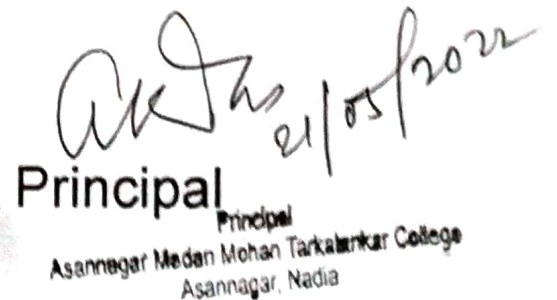 AKDas 21/05/2022
Principal
Principal
Asannagar Madan Mohan Tarkalankar College
Asannagar, Nadia